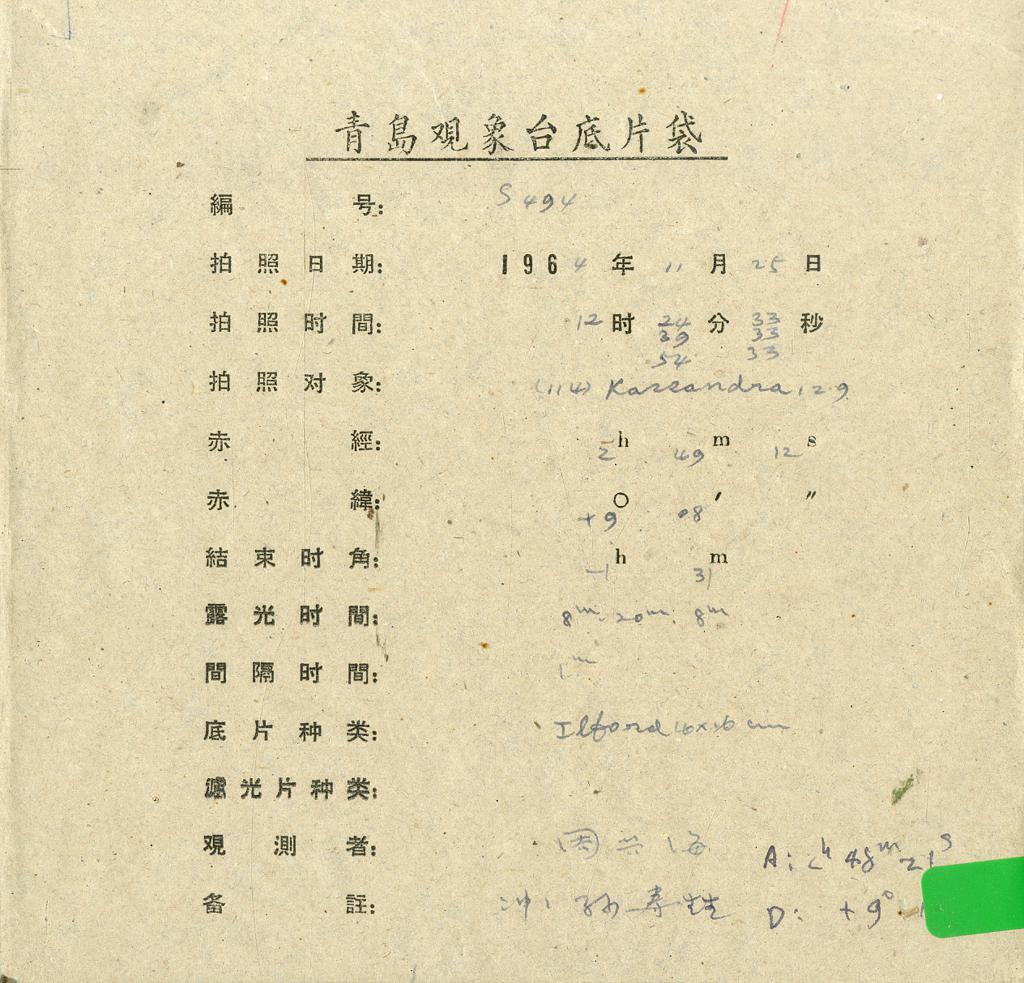 青島观象台底片袋
編 号: S 494
拍照日期: 1964年 11月 25日
拍照时間: 12时 24分 33秒
39 33
54 33
拍照对象: (114) Kassandra 12.9
赤 經: 2h 49m 12s
赤 緯: +9° 08′ ″
結束时角: -1h 31m
露光时間: 8m. 20m. 8m
間隔时間: 1m
底片种类: Ilford 16×16 cm
濾光片种类:
观測者: 海
A: 2h 48m 21s
备 註: 冲: 孙寿
D: +9°